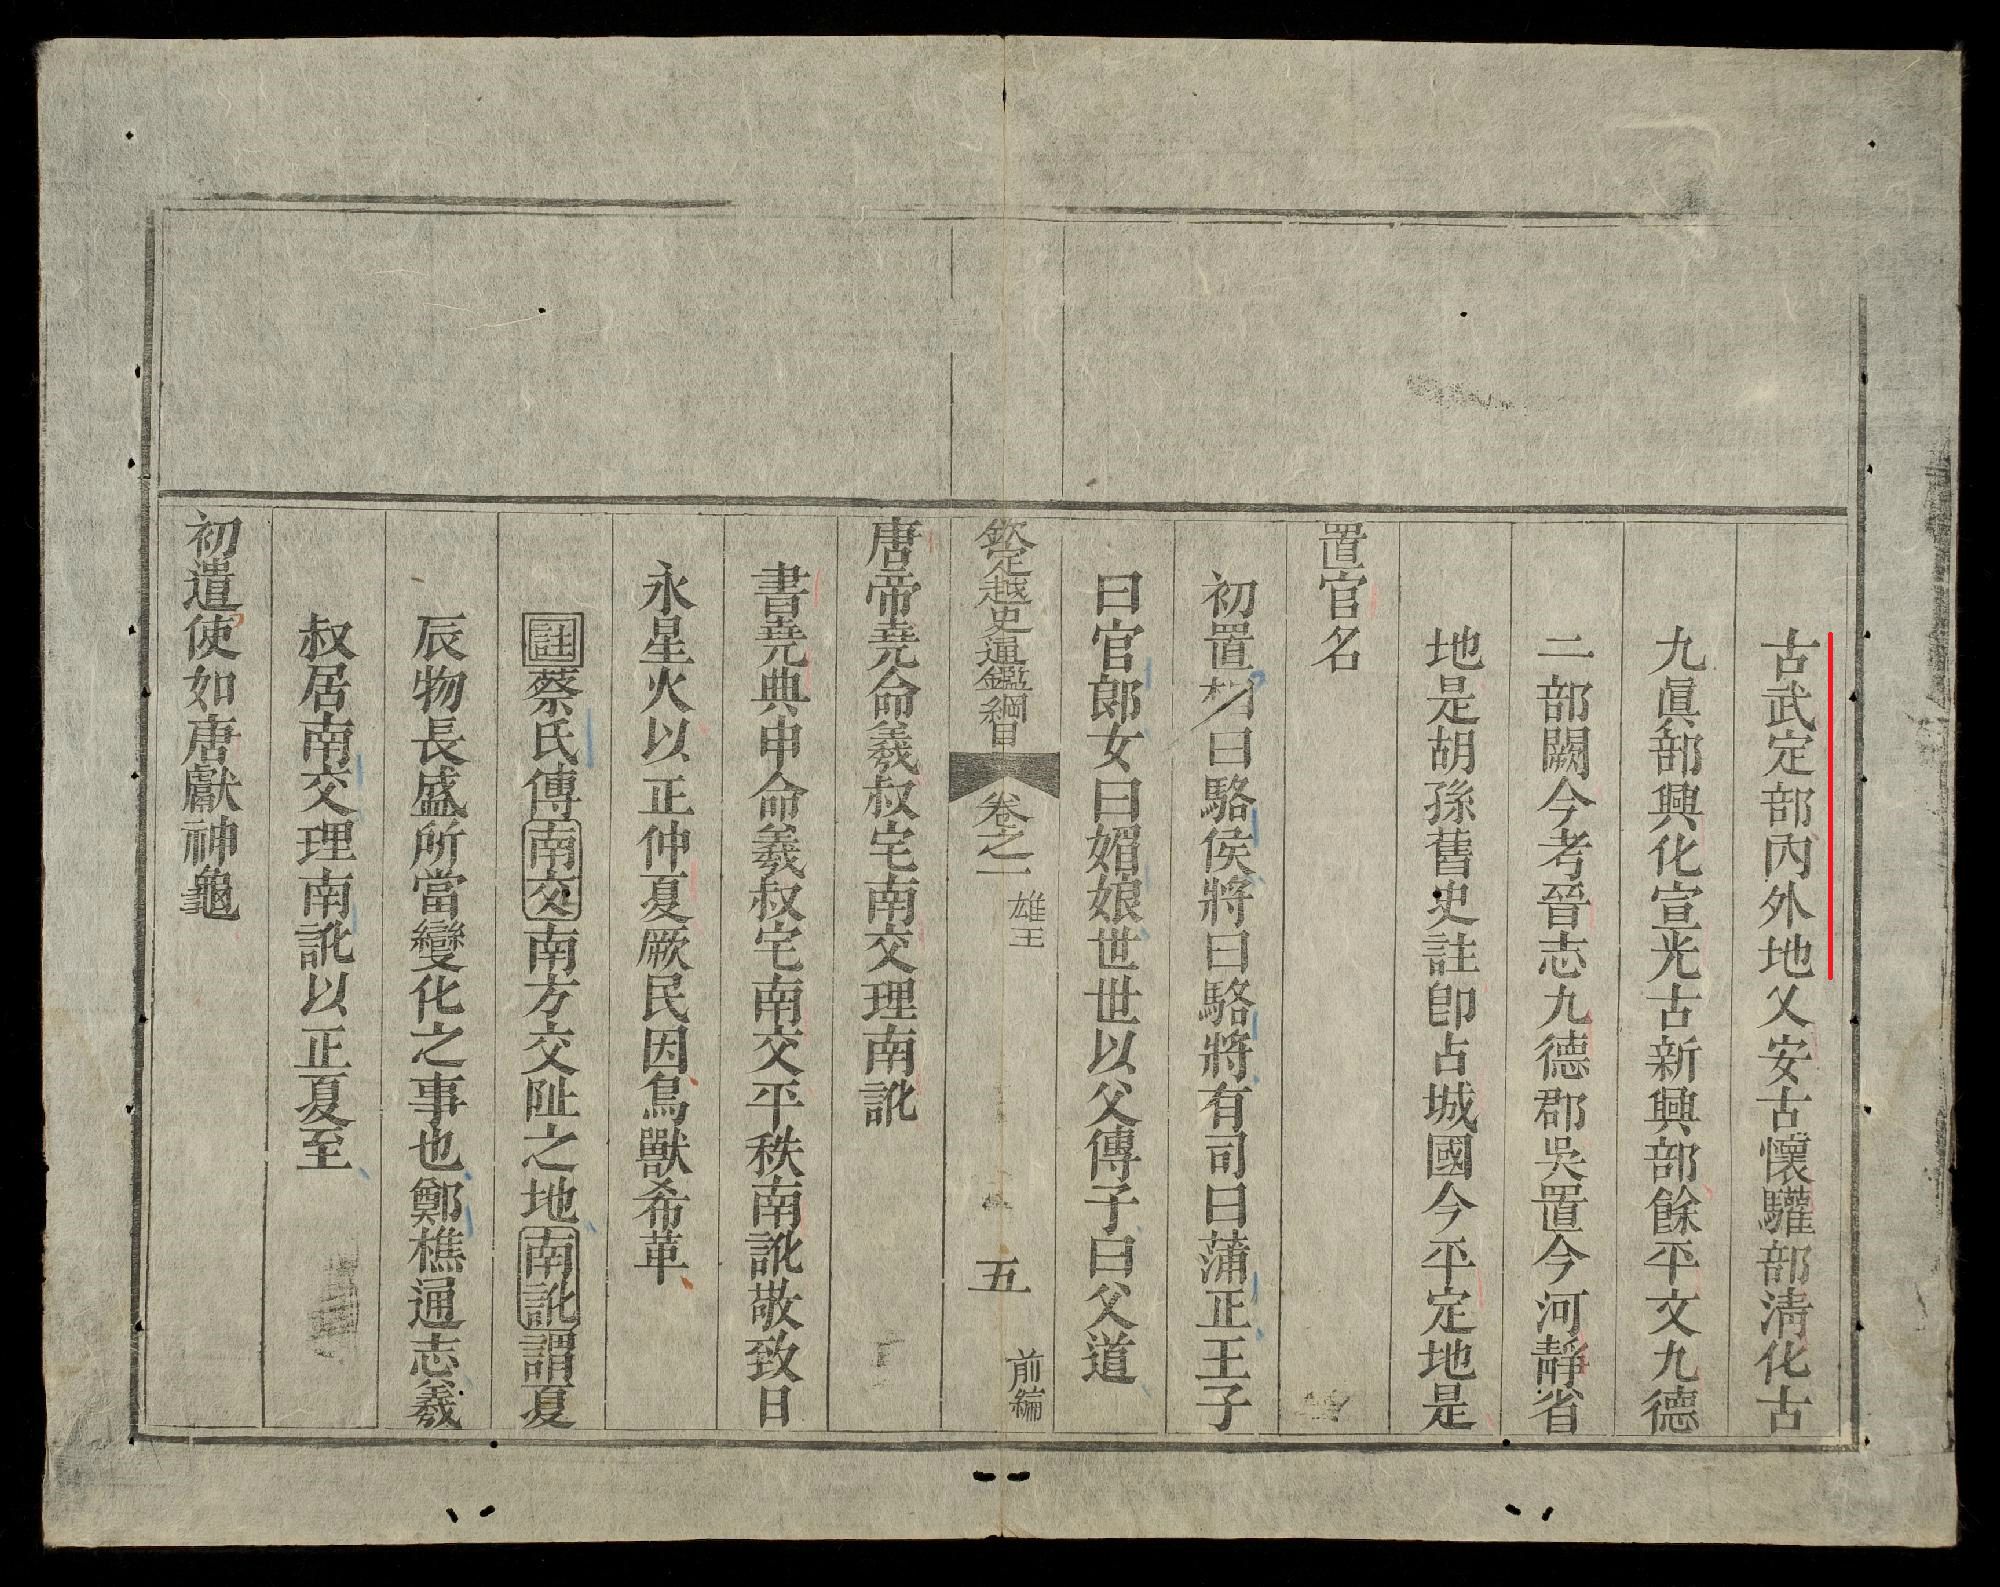 古武定部內外地乂安古懷驩部清化古
九眞部興化宣光古新興部餘平文九德
二部闕今考晉志九德郡吳置今河靜省
地是胡孫舊史註卽占城國今平定地是
置官名
初置相曰駱侯將曰駱將有司曰蒲正王子
曰官郎女曰媚娘世世以父傳子曰父道
欽定越史通鑑綱目 卷之一 雄王 五 前編
唐帝堯命羲叔宅南交理南訛
書堯典申命羲叔宅南交平秩南訛敬致日
永星火以正仲夏厥民因鳥獸希革
註蔡氏傳南交南方交阯之地南訛謂夏
辰物長盛所當變化之事也鄭樵通志羲
叔居南交理南訛以正夏至
初遣使如唐獻神龜